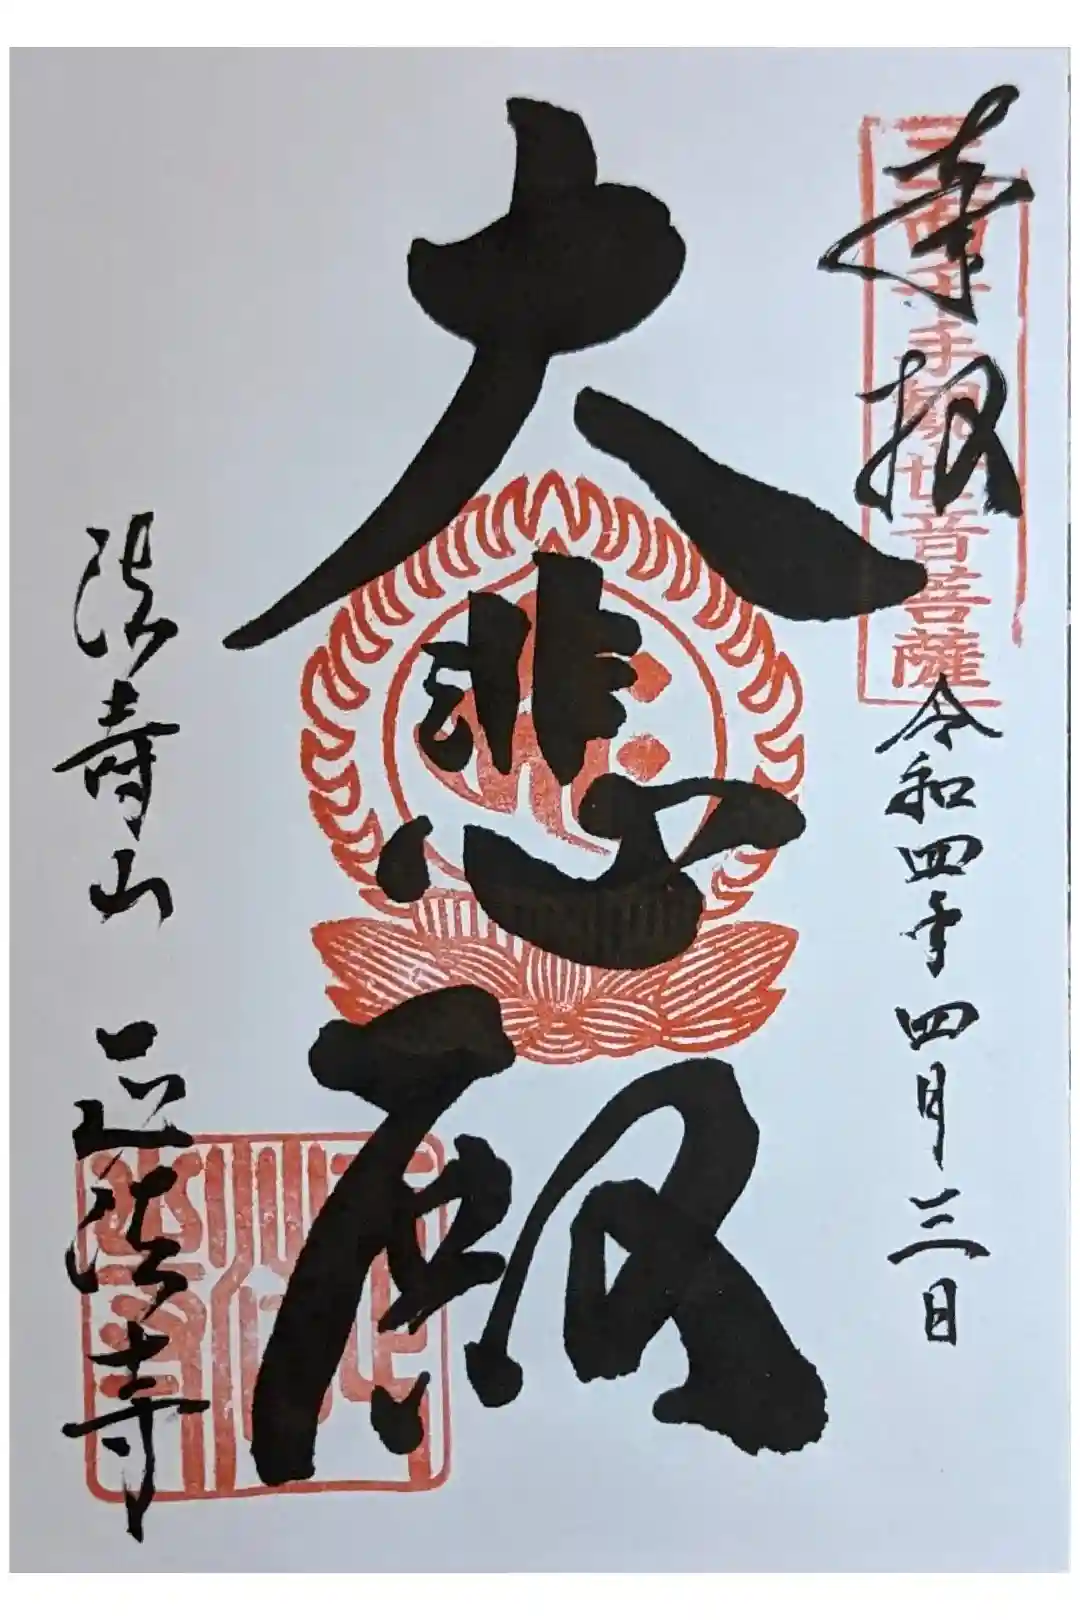 奉拝
三面千手觀世音菩薩
令和四年四月三日
大悲殿
法寿山 正法寺